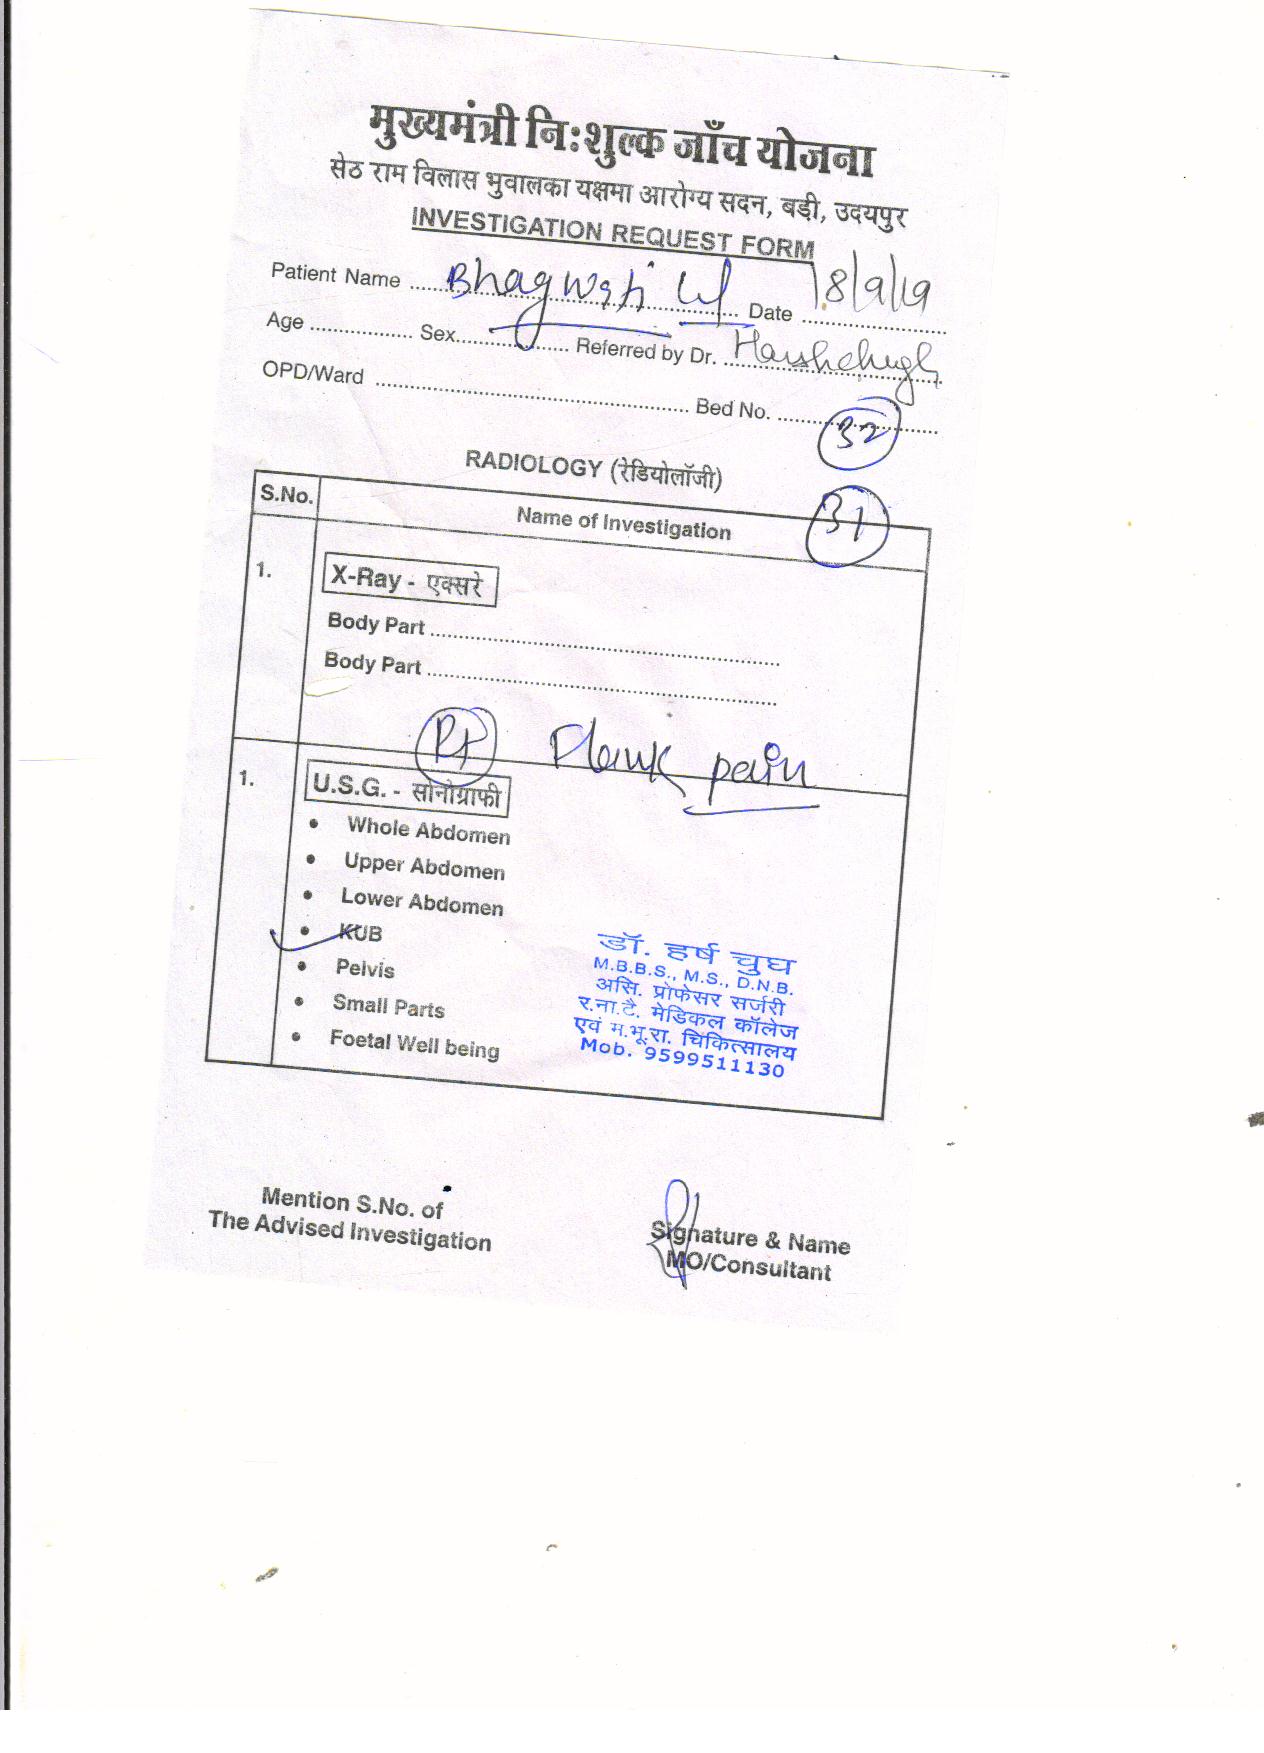 मुख्यमंत्री निःशुल्क जाँच योजना
सेठ राम विलास भुवालका यक्षमा आरोग्य सदन, बड़ी, उदयपुर
INVESTIGATION REQUEST FORM
Patient Name Bhagwati Date 18/9/19
Age Sex Referred by Dr. Harshchugh
OPD/Ward Bed No.
32
RADIOLOGY (रेडियोलॉजी)
31
S.No. Name of Investigation
1. X-Ray - एक्सरे
Body Part
Body Part
Rt Flank pain
1. U.S.G. - सोनोग्राफी
• Whole Abdomen
• Upper Abdomen
• Lower Abdomen
• KUB
• Pelvis
• Small Parts
• Foetal Well being
डॉ. हर्ष चुघ
M.B.B.S., M.S., D.N.B.
असि. प्रोफेसर सर्जरी
र.ना.टै. मेडिकल कॉलेज
एवं म.भू.रा. चिकित्सालय
Mob. 9599511130
Mention S.No. of
The Advised Investigation
Signature & Name
MO/Consultant